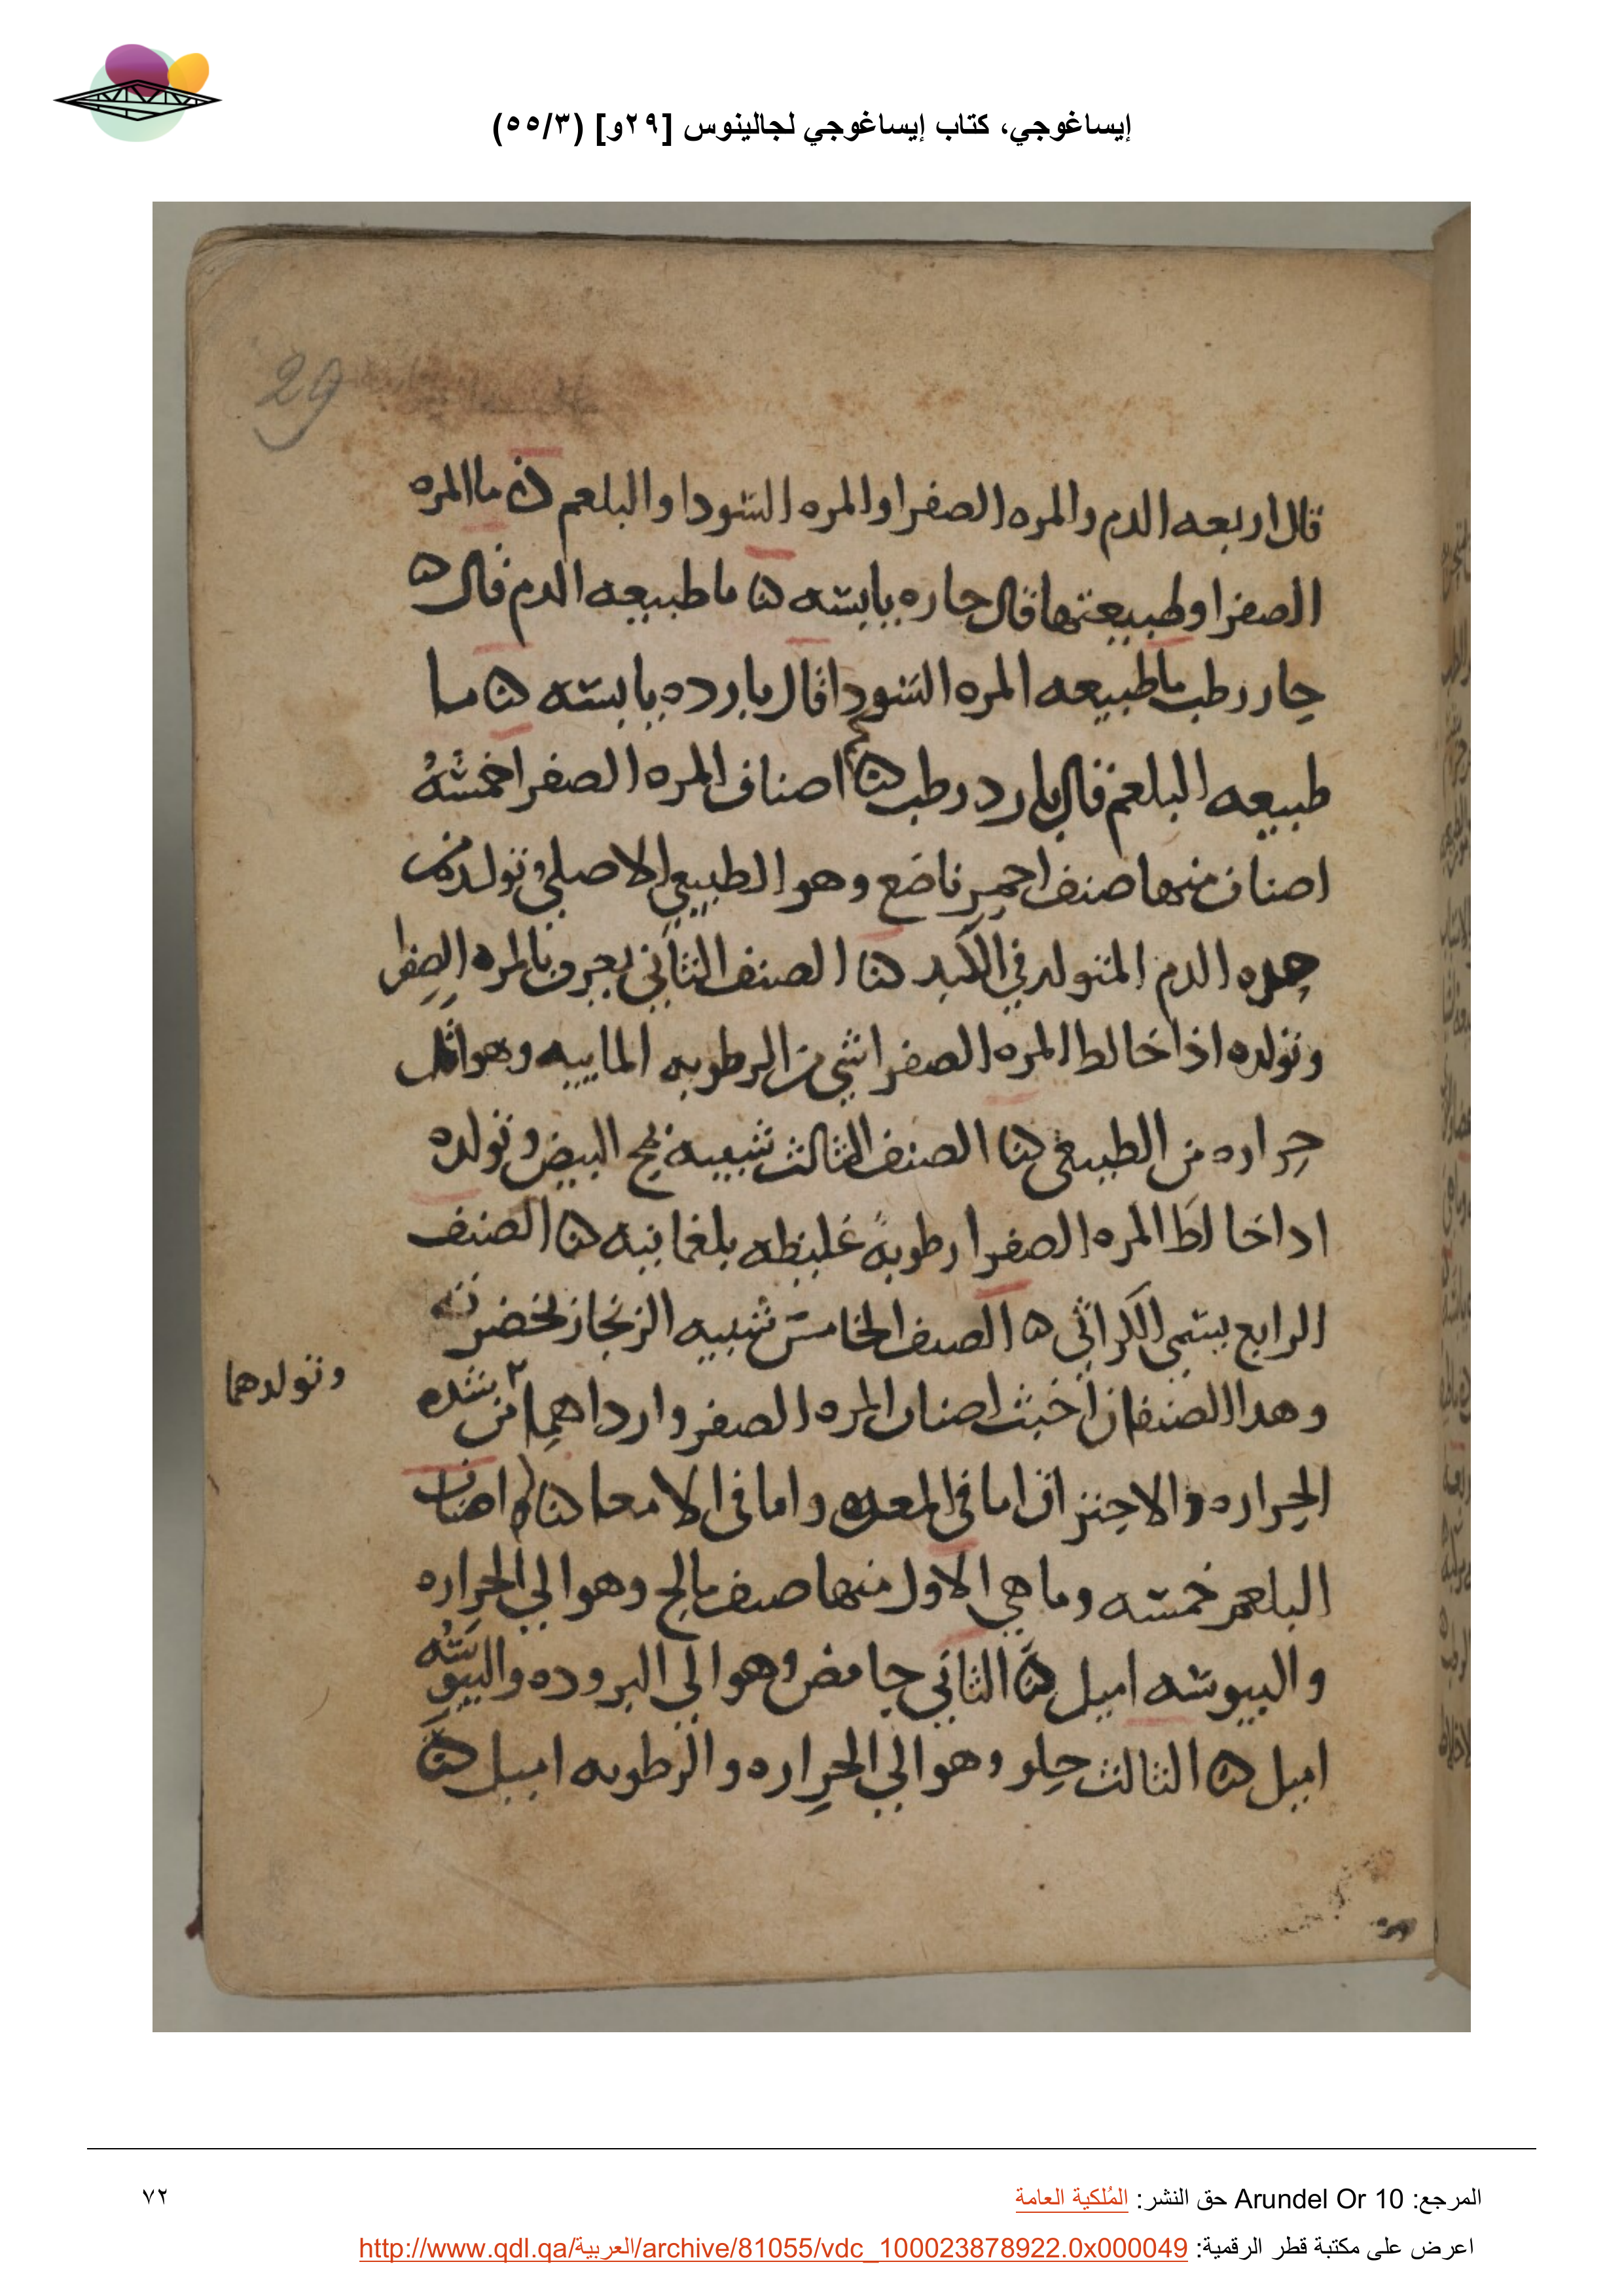 إيساغوجي، كتاب إيساغوجي لجالينوس [٢٩و] (٥٥/٣)
29
قال اربعه الدم والمره الصفرا والمره السودا والبلغم ما المره
الصفرا وطبيعتها قال حاره يابسه ما طبيعه الدم قال
حار رطب ما طبيعه المره السودا قال بارده يابسه ما
طبيعه البلغم قال بارد رطب اصناف المره الصفرا خمسه
اصناف منها صنف احمر ناصع وهو الطبيعي الاصلي وتولد من
حده الدم المتولد في الكبد الصنف الثاني يعرف بالمره الصفرا
وتولده اذا خالط المره الصفرا شي من الرطوبه الماييه وهو اقل
حراره من الطبيعي الصنف الثالث شبيه بمح البيض وتولده
اذا خالط المره الصفرا رطوبةً غليظه بلغمانيه الصنف
الرابع يسمي الكراثي ه الصنف الخامس شبيه الزنجار بخضرته
وهدا الصنفان اخبث اصناف المره الصفر وارداهما من شده
وتولدهما
الحراره والاحتراق اما في المعده واما في الامعا اصناف
البلغم خمسه وما هي الاول منها صنف مالح وهو الي الحراره
واليبوسه اميل الثاني حامض وهو الي البروده واليبوسه
اميل الثالث حلو وهو الي الحراره والرطوبه اميل
المرجع: Arundel Or 10 حق النشر: المُلكية العامة
٧٢
اعرض على مكتبة قطر الرقمية: http://www.qdl.qa/العربية/archive/81055/vdc_100023878922.0x000049